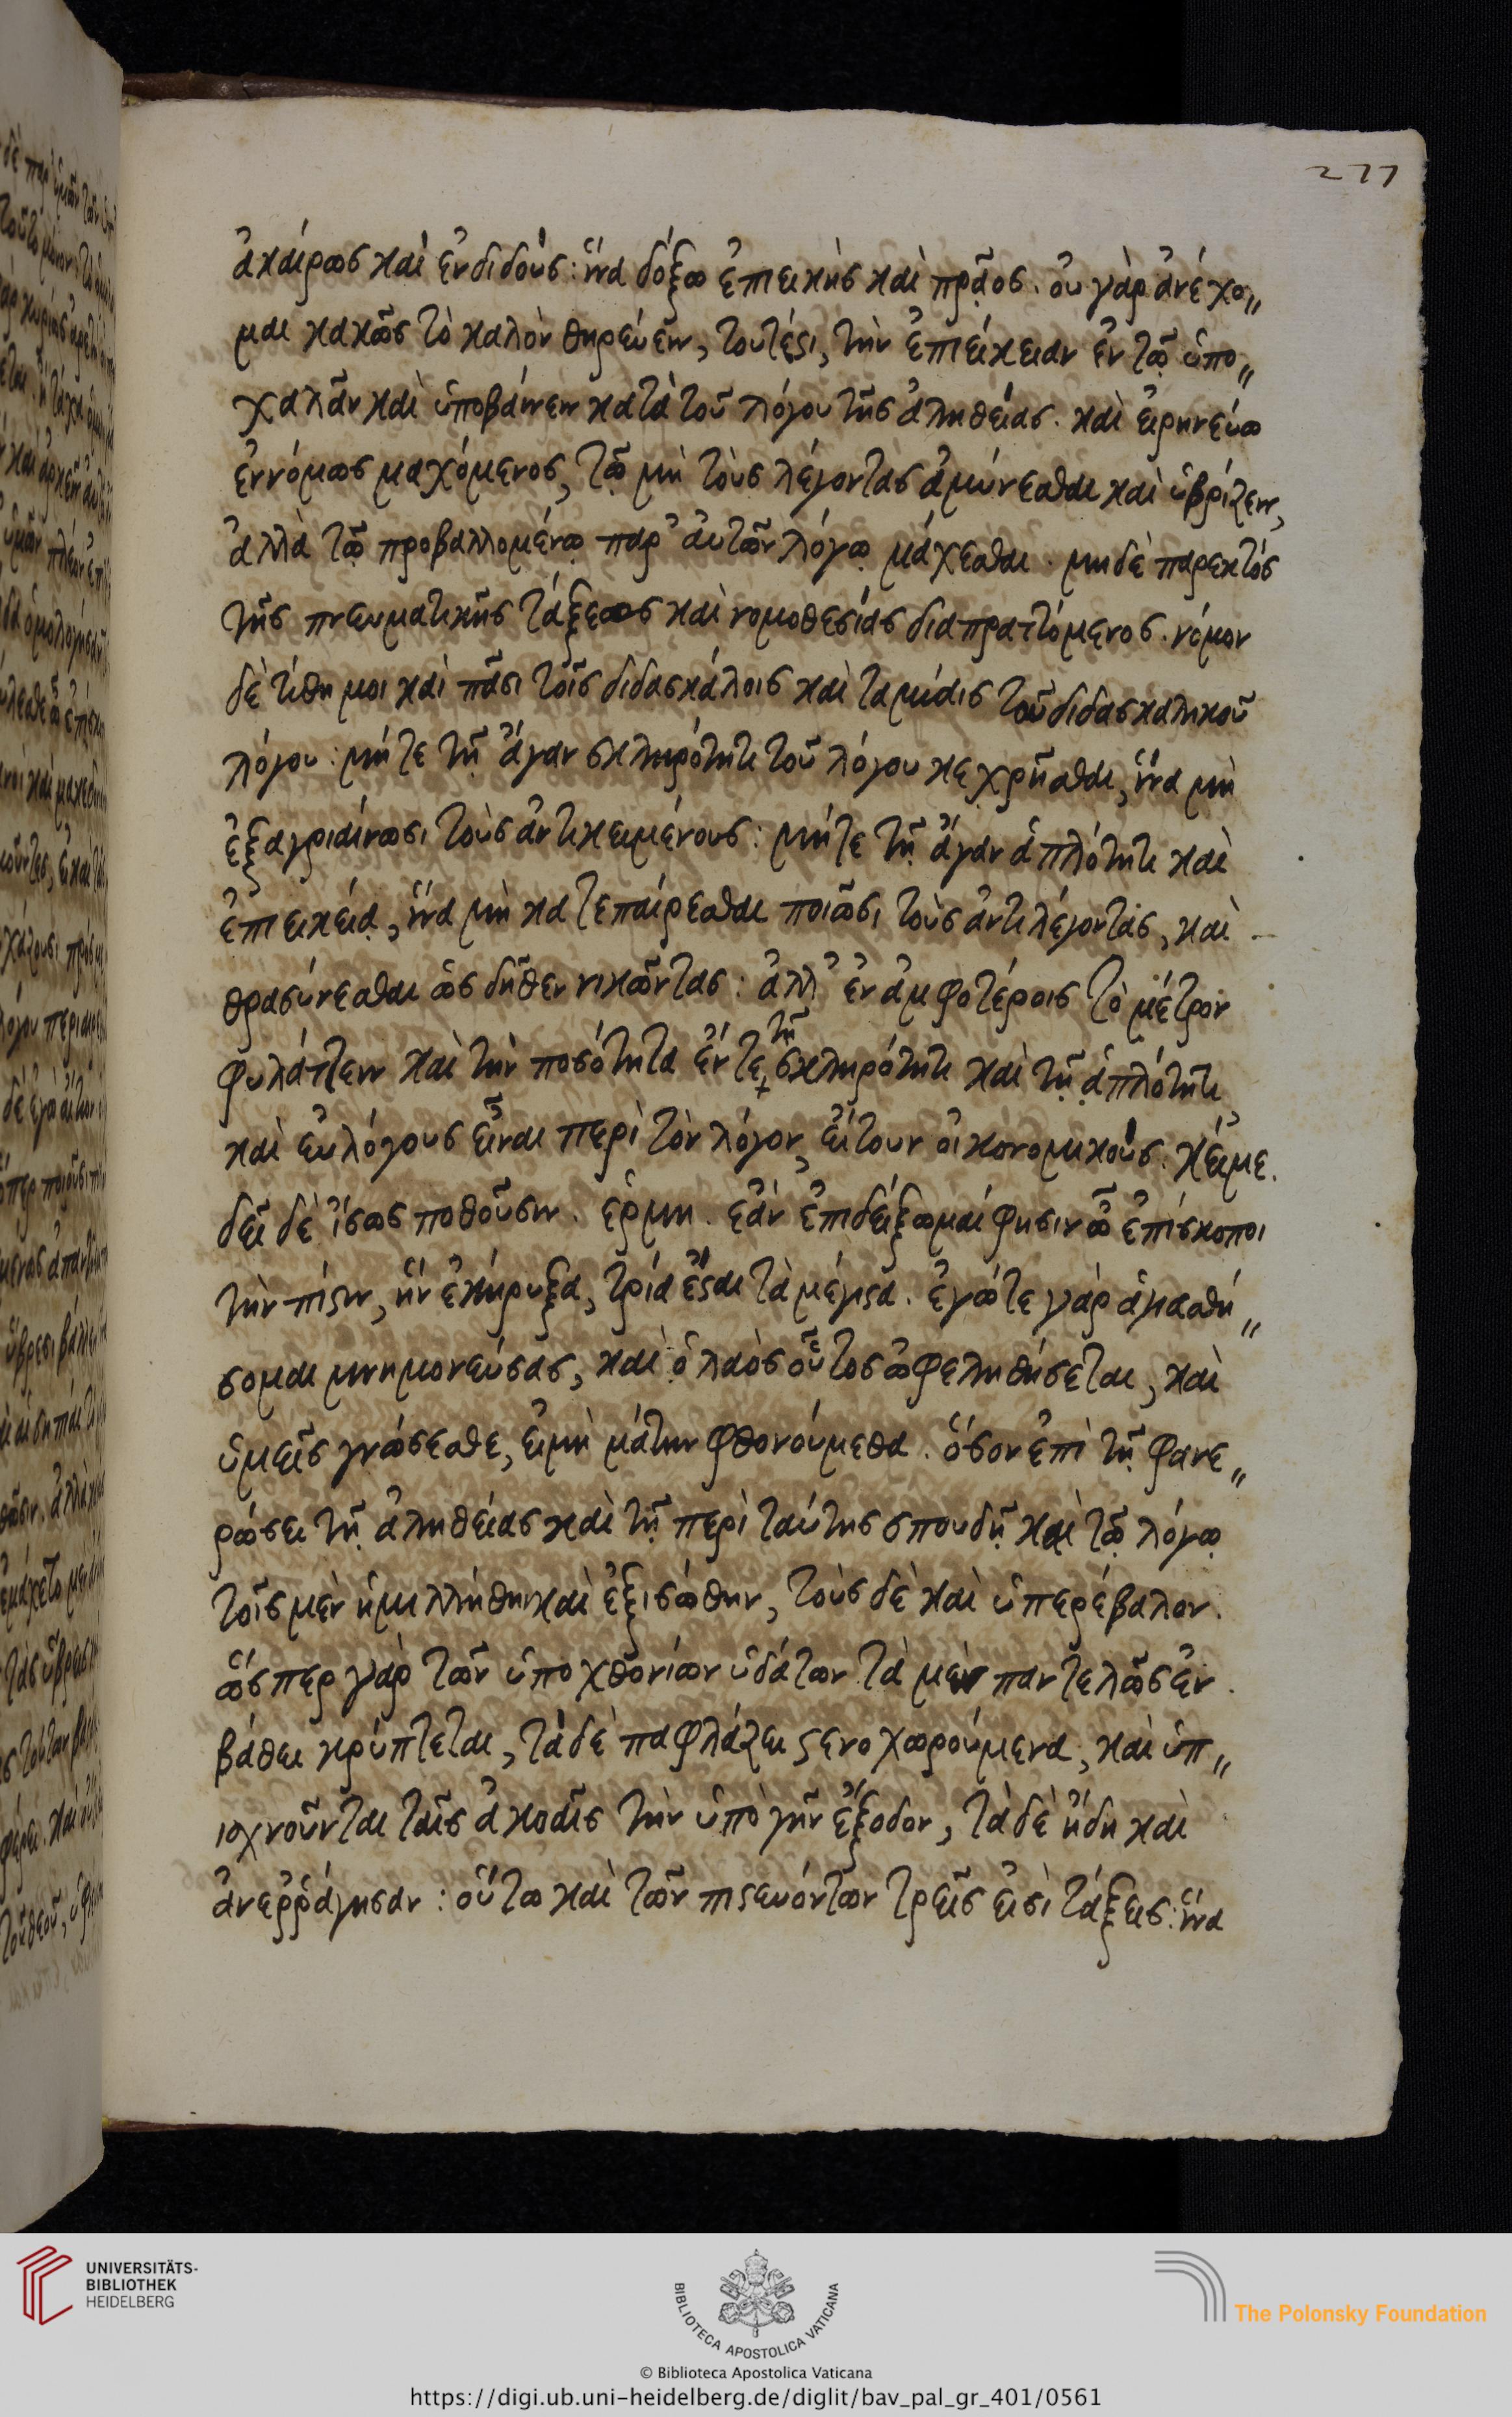 277
ἀκαίρως καὶ ἐνδιδούς: ἵνα δόξω ἐπιεικὴς καὶ πρᾷος. οὐ γὰρ ἀνέχο〃
μαι κακῶς τὸ καλὸν θηρεύειν, τουτέστι, τὴν ἐπιείκειαν ἐν τῷ ὑπο〃
χαλᾶν καὶ ὑποβαίνειν κατὰ τοῦ λόγου τῆς ἀληθείας. καὶ εἰρηνεύω
ἐννόμως μαχόμενος, τῷ μὴ τοὺς λέγοντας ἀμύνεσθαι καὶ ὑβρίζειν,
ἀλλὰ τῷ προβαλλομένῳ παρ' αὐτῶν λόγῳ μάχεσθαι. μηδὲ παρεκτὸς
τῆς πνευματικῆς τάξεως καὶ νομοθεσίας διαπραττόμενος. νόμον
δὲ τίθημοι καὶ πᾶσι τοῖς διδασκάλοις καὶ ταμίαις τοῦ διδασκαλικοῦ
λόγου: μήτε τῇ ἄγαν σκληρότητι τοῦ λόγου κεχρῆσθαι, ἵνα μὴ
ἐξαγριαίνωσι τοὺς ἀντικειμένους: μήτε τῇ ἄγαν ἁπλότητι καὶ
ἐπιεικείᾳ, ἵνα μὴ κατεπαίρεσθαι ποιῶσι τοὺς ἀντιλέγοντας, καὶ
θρασύνεσθαι ὡς δῆθεν νικῶντας: ἀλλ' ἐν ἀμφοτέροις τὸ μέτρον
φυλάττειν καὶ τὴν ποσότητα ἔν τε τῇ σκληρότητι καὶ τῇ ἁπλότητι
καὶ εὐλόγους εἶναι περὶ τὸν λόγον, εἴτουν οἰκονομικούς. κείμε.
δεῖ δὲ ἴσως ποθοῦσιν. ἑρμη. ἐὰν ἐπιδείξωμαί φησιν ὦ ἐπίσκοποι
τὴν πίστιν, ἣν ἐκήρυξα, τρία ἔσται τὰ μέγιστα. ἐγώ τε γὰρ ἁγιασθή〃
σομαι μνημονεύσας, καὶ ὁ λαὸς οὗτος ὠφεληθήσεται, καὶ
ὑμεῖς γνώσεσθε, εἰ μὴ μάτην φθονούμεθα. ὅσον ἐπὶ τῇ φανε〃
ρώσει τῇ ἀληθείας καὶ τῇ περὶ ταύτης σπουδῇ καὶ τῷ λόγῳ
τοῖς μὲν ἡμιλλήθην καὶ ἐξισώθην, τοὺς δὲ καὶ ὑπερέβαλον.
ὥσπερ γὰρ τῶν ὑποχθονίων ὑδάτων τὰ μὲν παντελῶς ἐν
βάθει κρύπτεται, τὰ δὲ παφλάζει στενοχωρούμενα, καὶ ὑπ〃
ισχνοῦνται ταῖς ἀκοαῖς τὴν ὑπὸ γῆν ἔξοδον, τὰ δὲ ἤδη καὶ
ἀνερράγησαν: οὕτω καὶ τῶν πιστευόντων τρεῖς εἰσὶ τάξεις: ἵνα
UNIVERSITÄTS-
BIBLIOTHEK
HEIDELBERG
BIBLIOTECA APOSTOLICA VATICANA
The Polonsky Foundation
© Biblioteca Apostolica Vaticana
https://digi.ub.uni-heidelberg.de/diglit/bav_pal_gr_401/0561